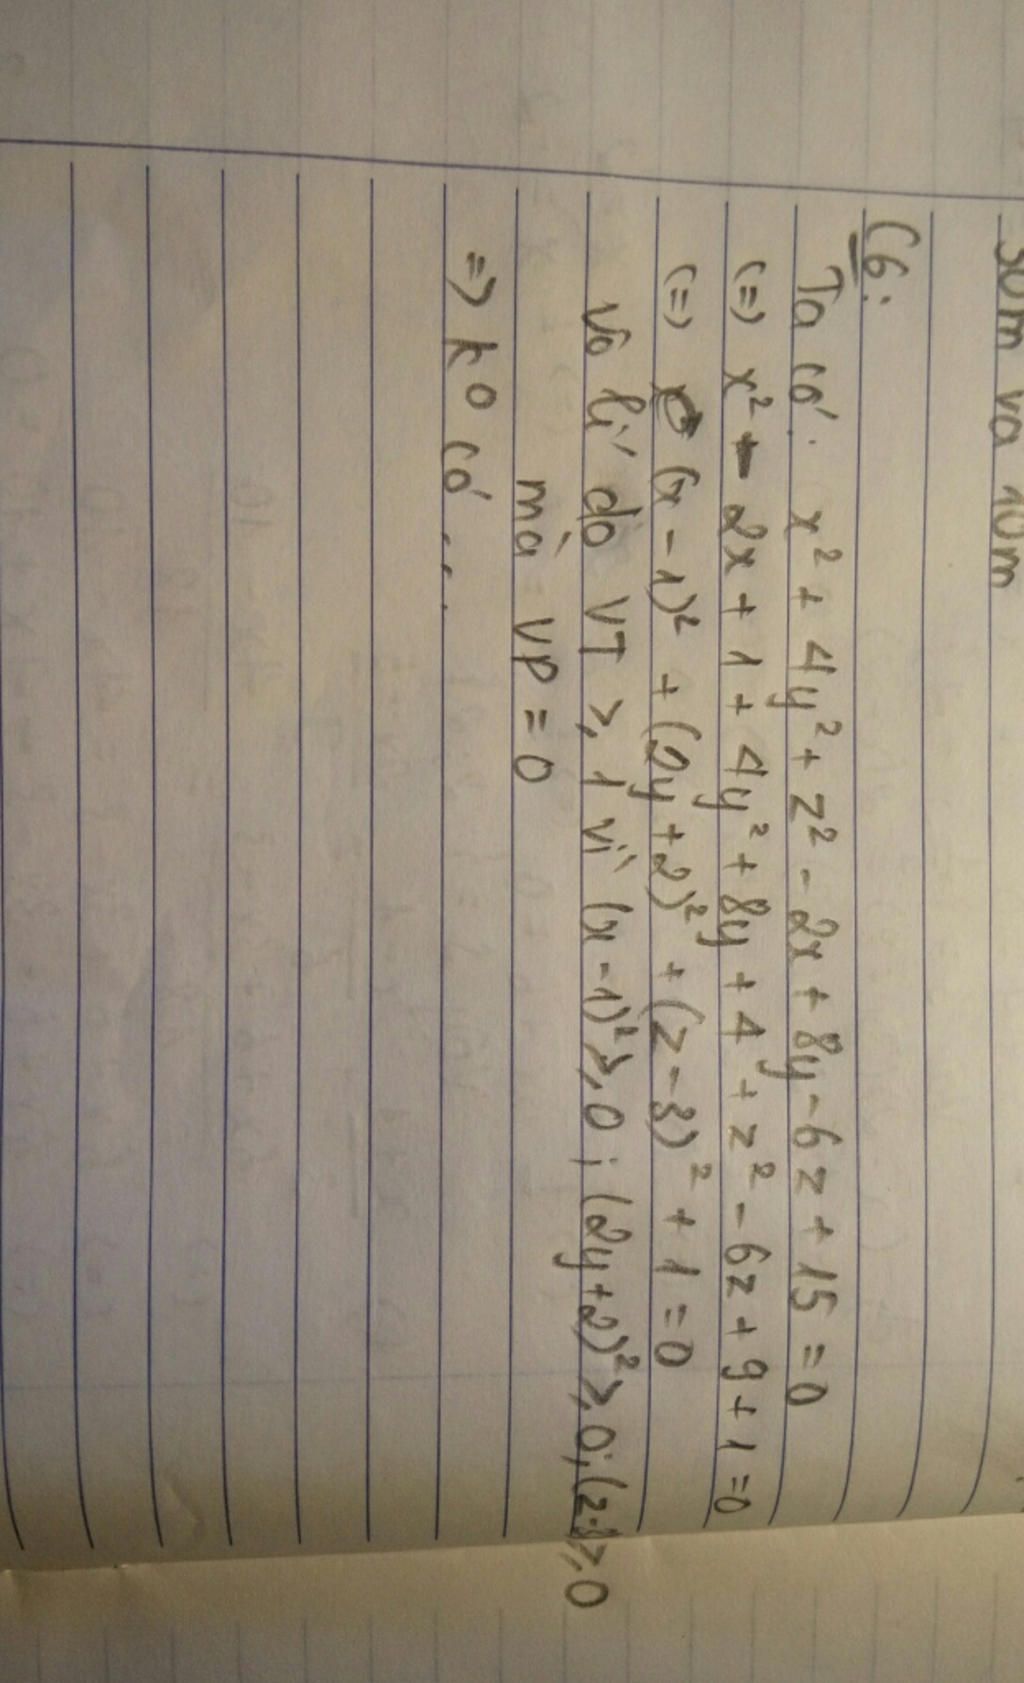 30m và 10m
C6:
Ta có: x² + 4y² + z² - 2x + 8y - 6z + 15 = 0
(=) x² - 2x + 1 + 4y² + 8y + 4 + z² - 6z + 9 + 1 = 0
(=) (x - 1)² + (2y + 2)² + (z - 3)² + 1 = 0
Vô lí do VT ≥ 1 vì (x - 1)² ≥ 0 ; (2y + 2)² ≥ 0 ;
mà VP = 0
=> ko có ...